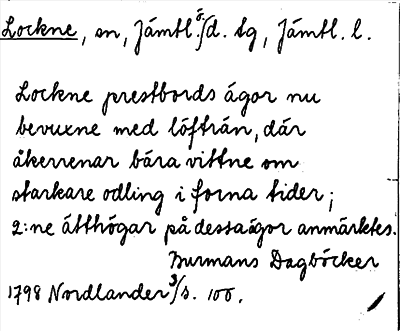 Lockne, sn, Jämtl. ö/d. tg, Jämtl. l.
Lockne prestbords ägor nu
bevuxne med löfträn, där
åkerrenar bära vittne om
starkare odling i forna tider;
2:ne ätthögar på dessa ägor anmärktes.
Burmans Dagböcker
1798 Nordlander 3/s. 100.